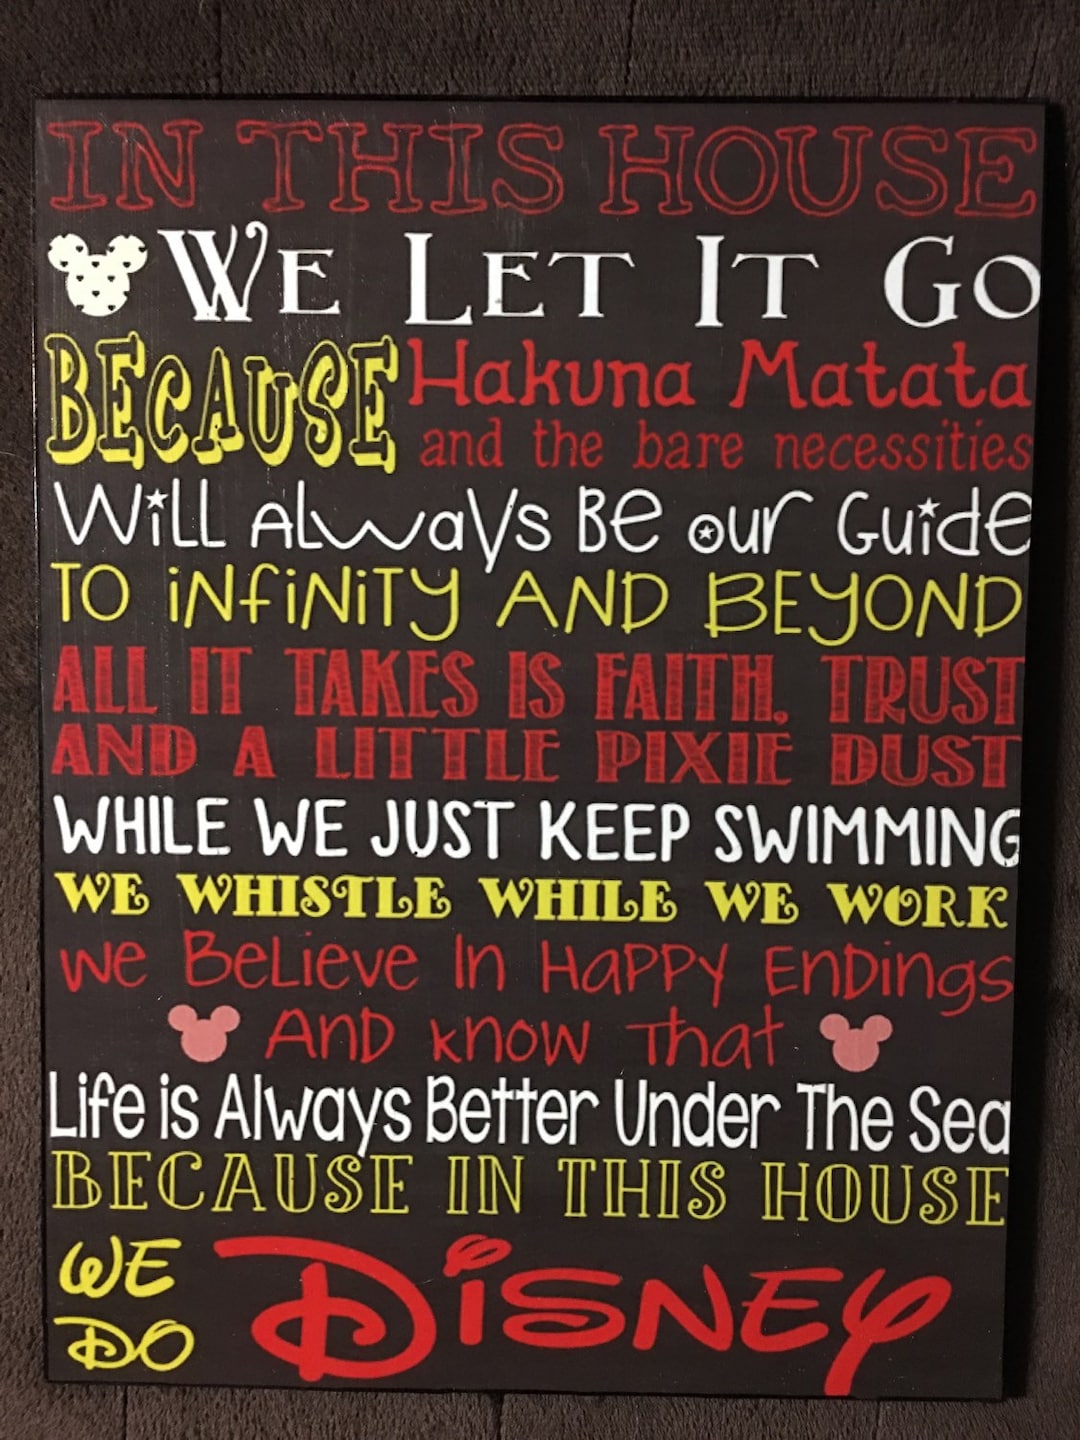 IN THIS HOUSE
WE LET IT GO
BECAUSE Hakuna Matata
and the bare necessities
Will Always Be our Guide
TO iNfiNiTy AND BEyOND
ALL IT TAKES IS FAITH, TRUST
AND A LITTLE PIXIE DUST
WHILE WE JUST KEEP SWIMMING
WE WHISTLE WHILE WE WORK
We Believe In Happy Endings
And know That
Life is Always Better Under The Sea
BECAUSE IN THIS HOUSE
WE DO DiSNEY